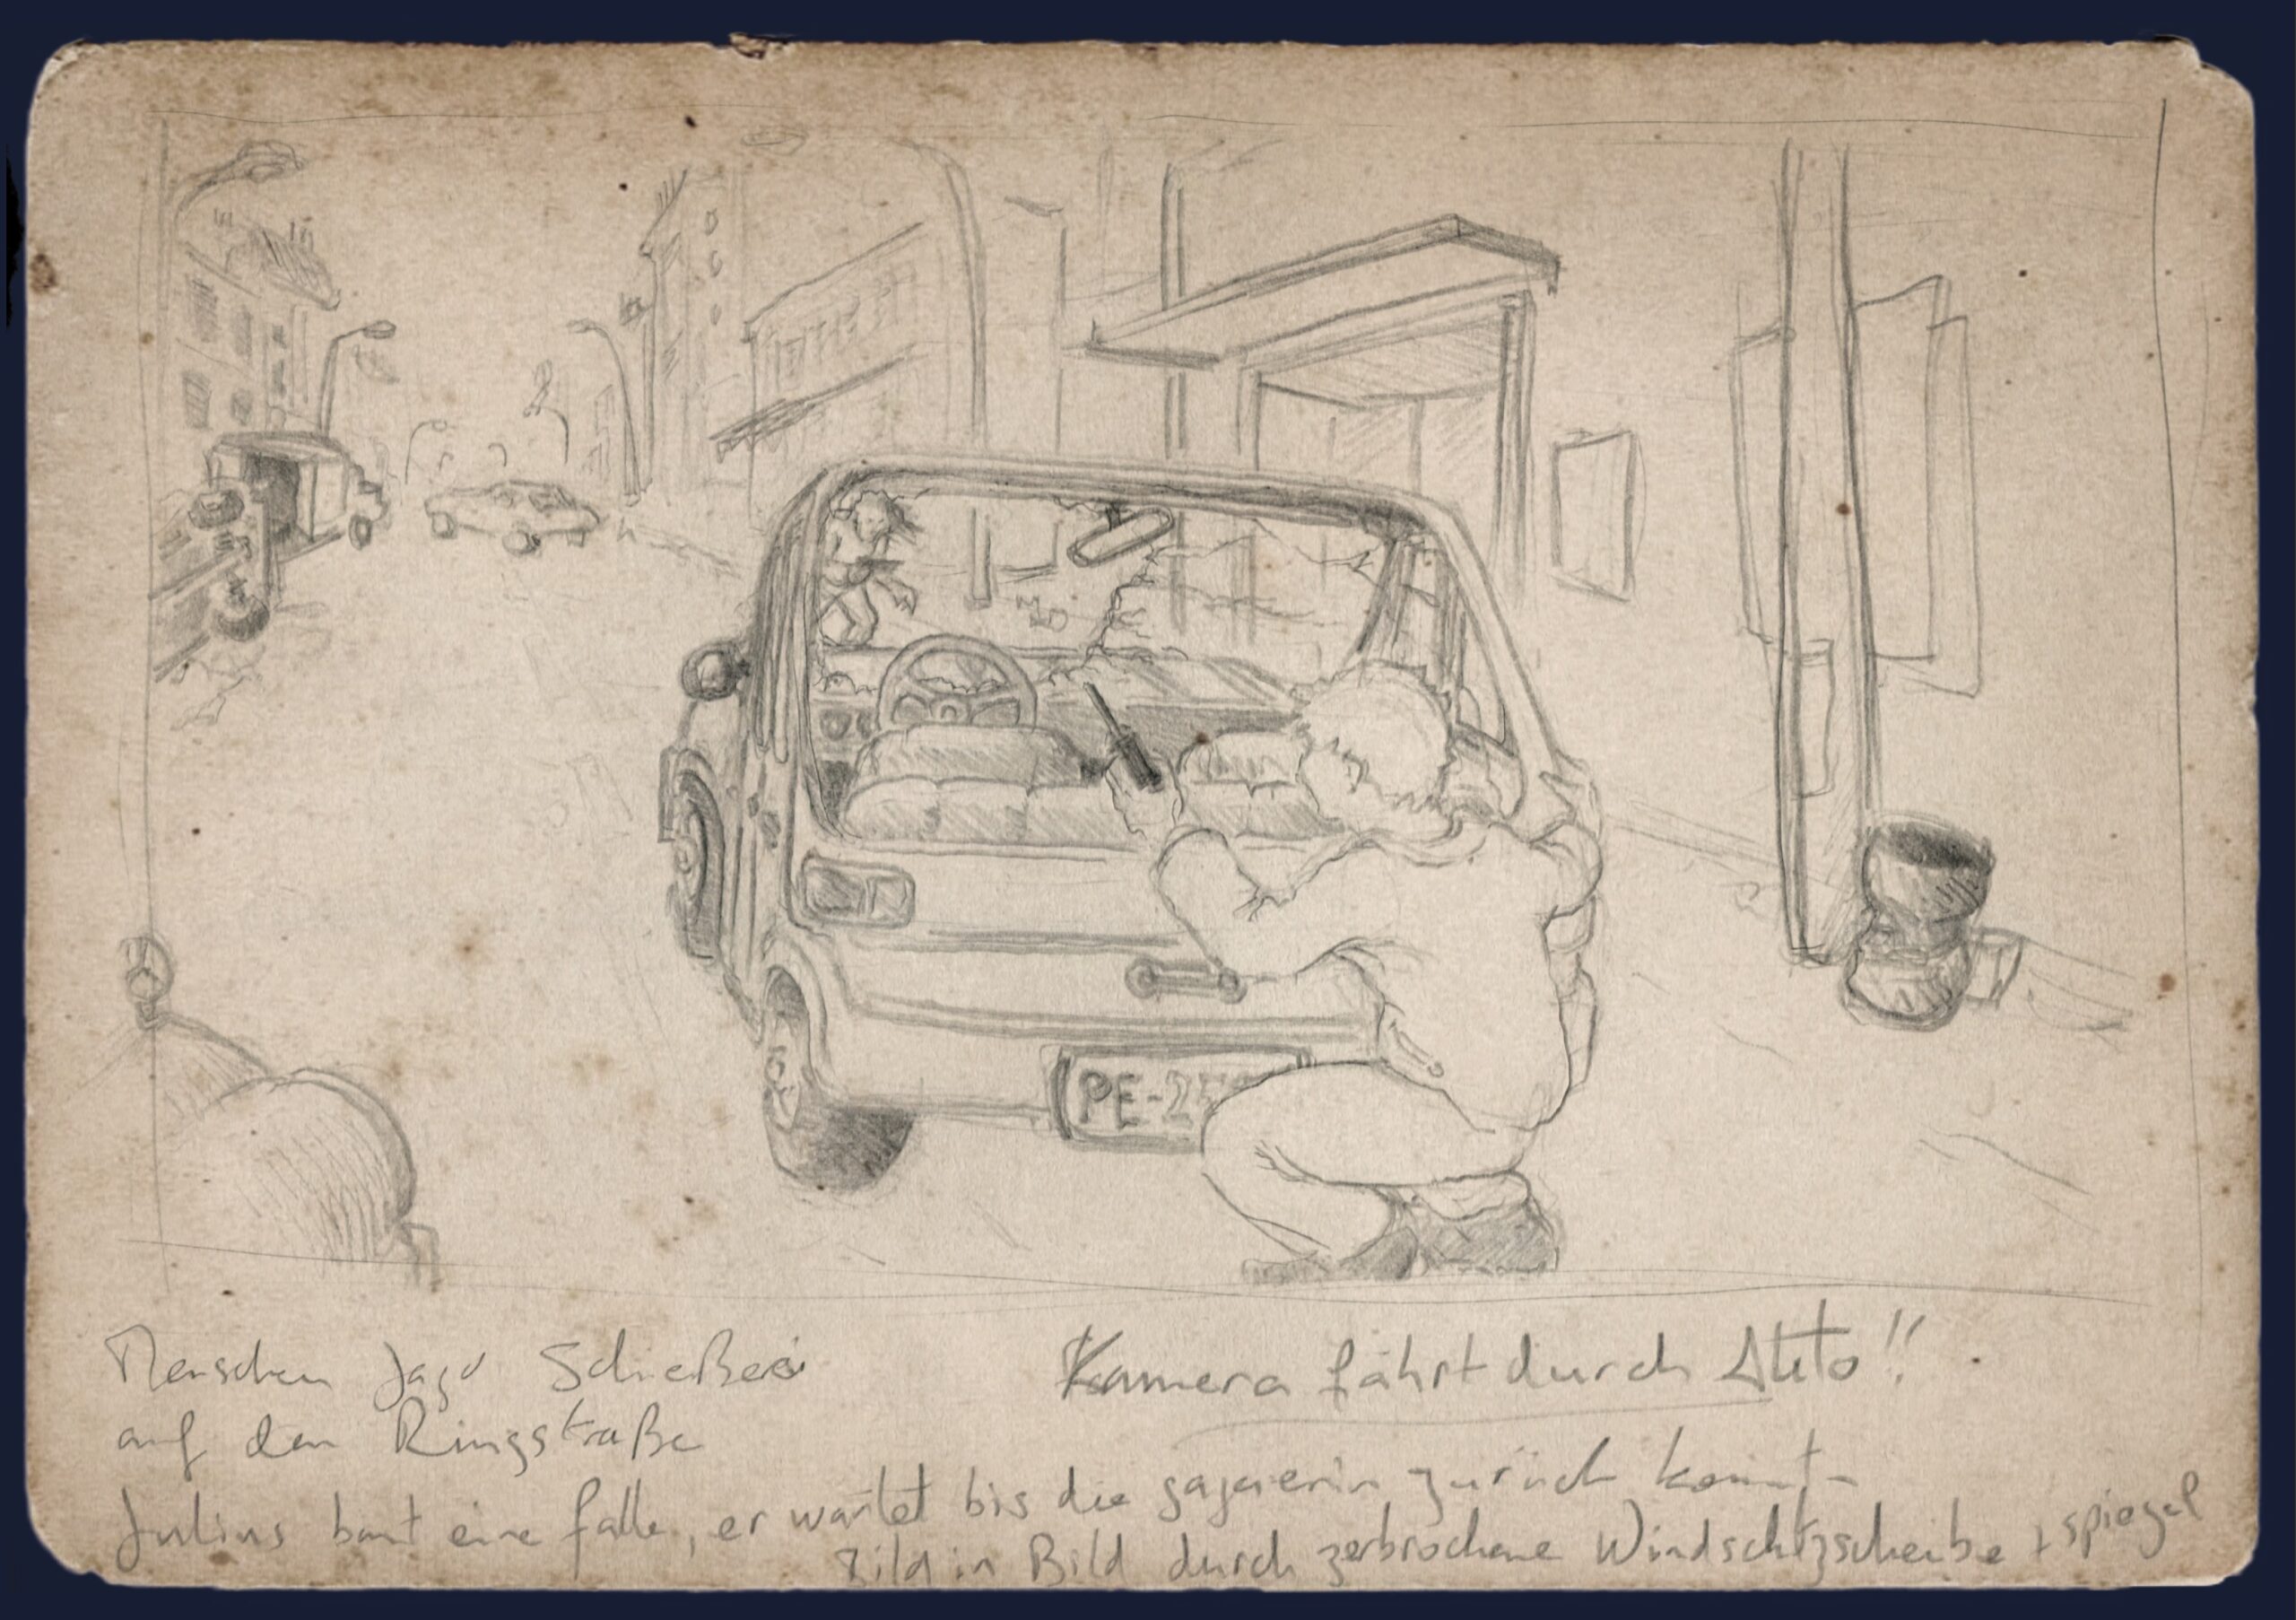 PE-25
Menschen Jagd Schießerei
auf den Ringstraße
Kamera fährt durch Auto!!
Julius baut eine falle, er wartet bis die gegnerin zurück kommt
Bild in Bild durch zerbrochene Windschutzscheibe + spiegel